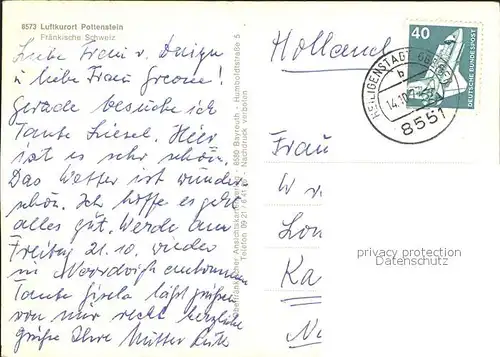 8573 Luftkurort Pottenstein
Fränkische Schweiz
Liebe Frau v. Duijn
u liebe Frau Greome!
Gerade besuche ich
Tante Liesel. Hier
ist es sehr schön.
Das Wetter ist wunder
schön. Ich hoffe es geht
alles gut. Werde am
Freitag 21.10. wieder
in Noordwijk ankommen
Tante Gisela läßt grüßen
von mir recht herzliche
Grüße Ihre Mutter Ruth
8580 Bayreuth - Humboldtstraße 5
Nachdruck verboten
Holland
40
DEUTSCHE BUNDESPOST
HEILIGENSTADT
b
14.10.
8551
Frau
W v
Lon
Ka
No
privacy protection
Datenschutz